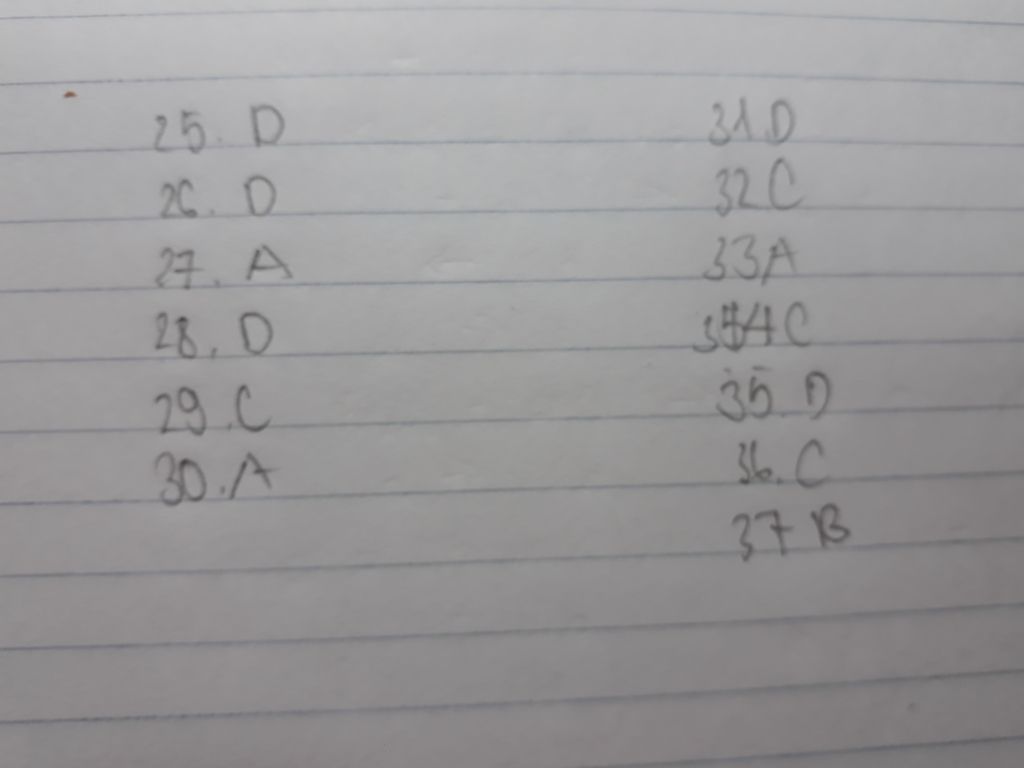 25. D
26. D
27. A
28. D
29. C
30. A
31 D
32 C
33 A
34 C
35. D
36. C
37 B